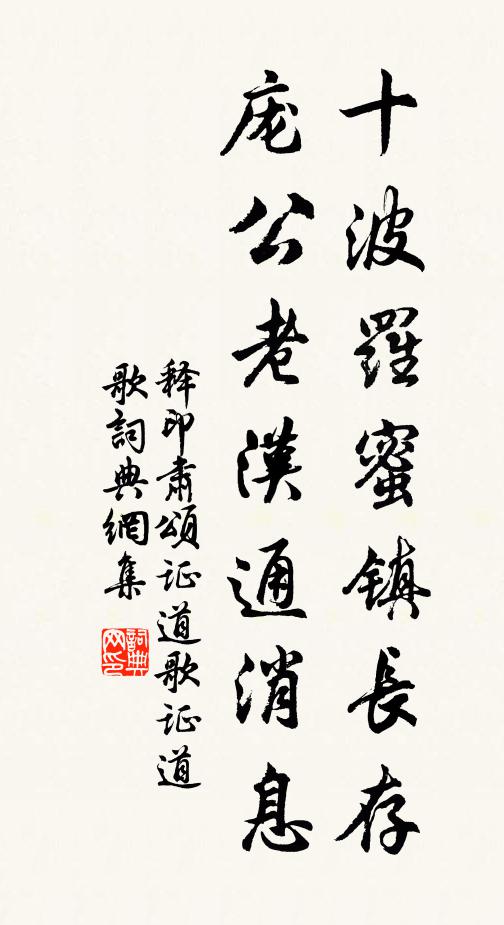 十波羅蜜镇長存
庞公老漢通消息
释印肃頌证道歌证道
歌詞典網集
詞典
网印